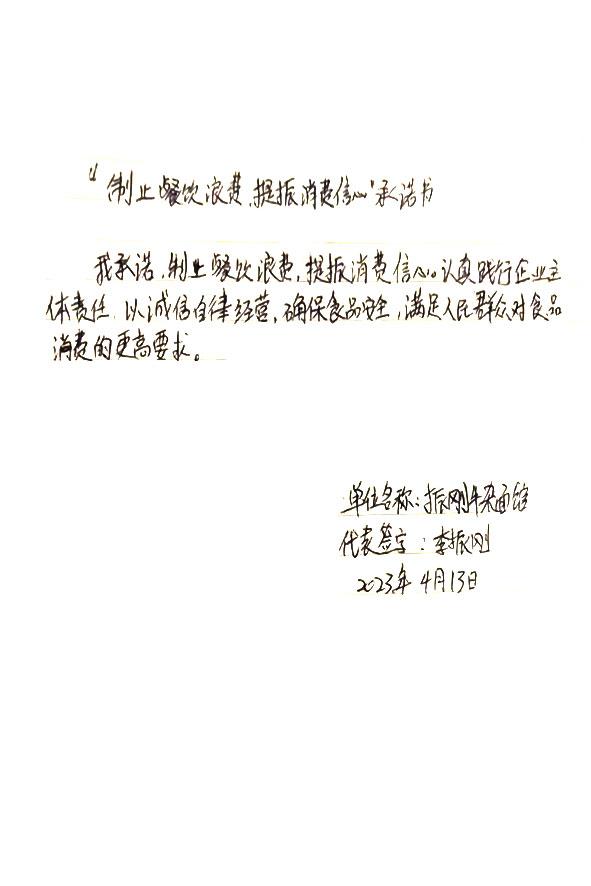 “制止餐饮浪费,提振消费信心”承诺书
我承诺,制止餐饮浪费,提振消费信心。认真践行企业主
体责任,以诚信自律经营,确保食品安全,满足人民群众对食品
消费的更高要求。
单位名称:振刚牛杂面馆
代表签字:李振刚
2023年4月13日